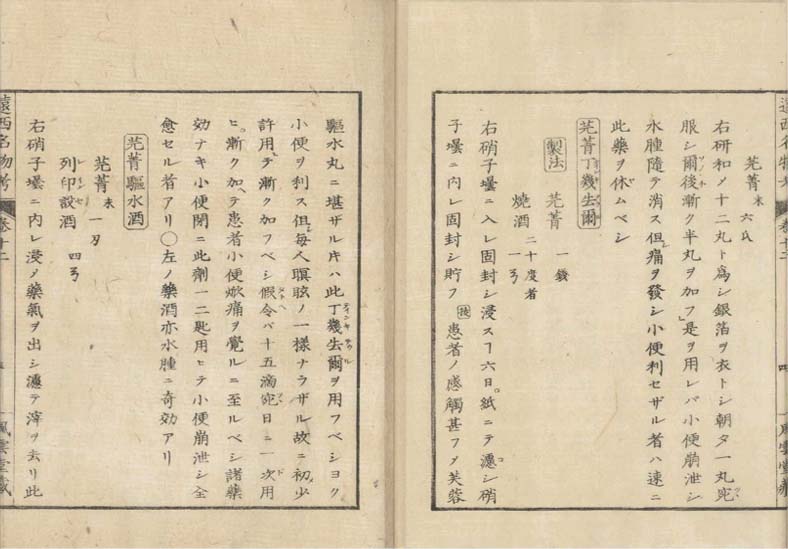 芫菁末 六氏
右研和メ十二丸ト為シ銀箔ヲ衣トシ朝夕一丸宛
服シ爾後漸ク半丸ヲ加フ是ヲ用レバ小便崩泄シ
水腫隨テ消ス但痛ヲ發シ小便利セザル者ハ速ニ
此藥ヲ休ムベシ
芫菁丁幾去爾
製法 芫菁 一錢
燒酒 二十度者 一弓
右硝子壜ニ入レ固封シ浸スヿ六日紙ニテ濾シ硝
子壜ニ内レ固封シ貯フ 患者ノ感觸甚フメ芙蓉
驅水丸ニ堪ザル片ハ此丁幾去爾ヲ用フベシヨク
小便ヲ利ス但毎人瞑眩ノ一様ナラザル故ニ初少
許用テ漸ク加フベシ假令バ十五滴宛日ニ一次用
ヒ漸ク加ヘテ患者小便焮痛ヲ覺ルニ至ルベシ諸藥
効ナキ小便閉ニ此劑一二匙用ヒテ小便崩泄シ全
愈セル者アリ〇左ノ藥酒亦水腫ニ奇効アリ
芫菁驅水酒
芫菁末 一刄
列印設酒 四弓
右硝子壜ニ内レ浸メ藥氣ヲ出シ濾テ滓ヲ去リ此
遠西名物考 卷十二
風雲堂藏